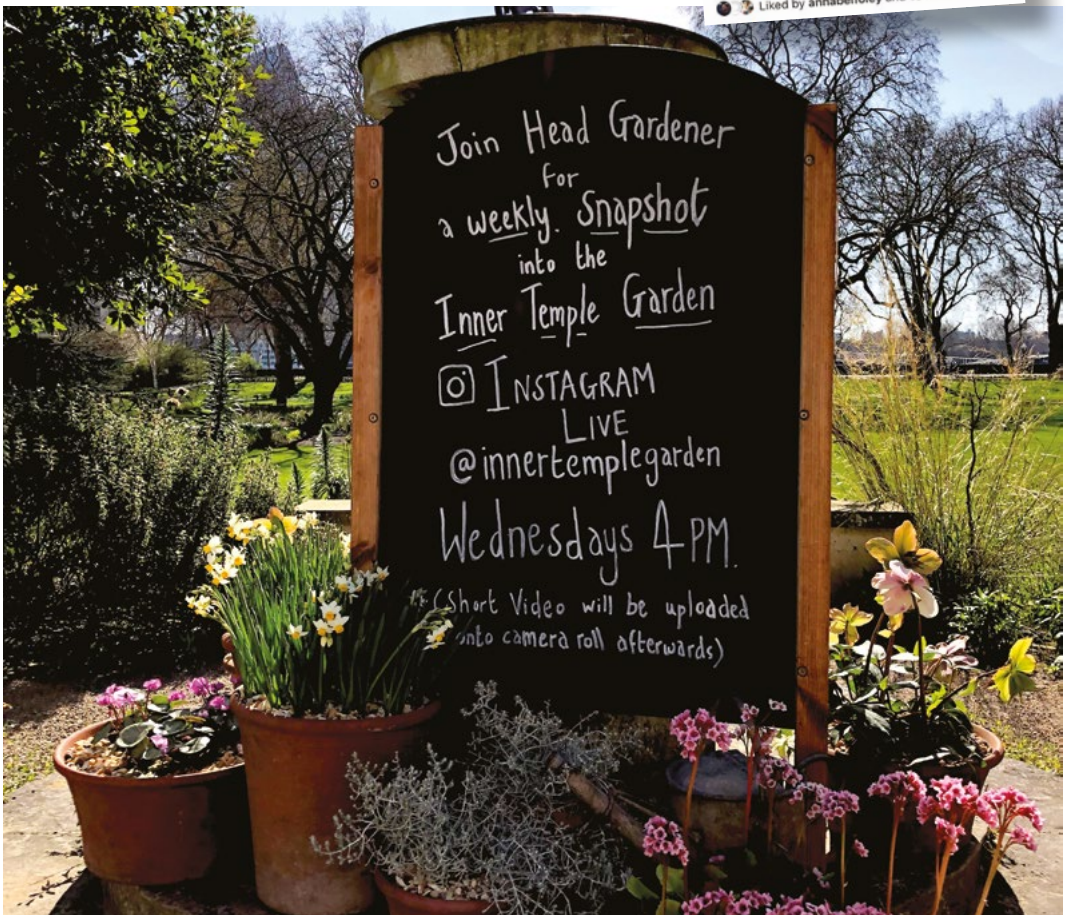 Liked by
Join Head Gardener
for
a weekly. Snapshot
into the
Inner Temple Garden
INSTAGRAM
LIVE
@innertemplegarden
Wednesdays 4 PM.
(Short Video will be uploaded
onto camera roll afterwards)